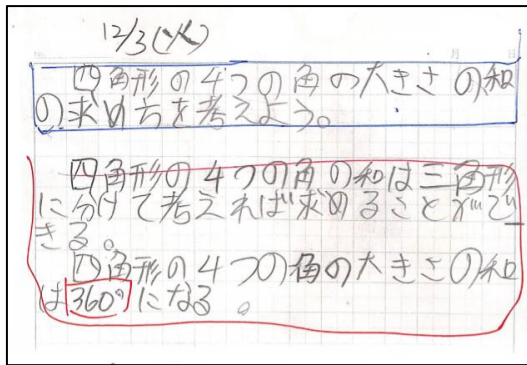 12/3(火)
四角形の4つの角の大きさの和
の求め方を考えよう。
四角形の4つの角の和は三角形
に分けて考えれば求めることがで
きる。
四角形の4つの角の大きさの和
は360°になる。